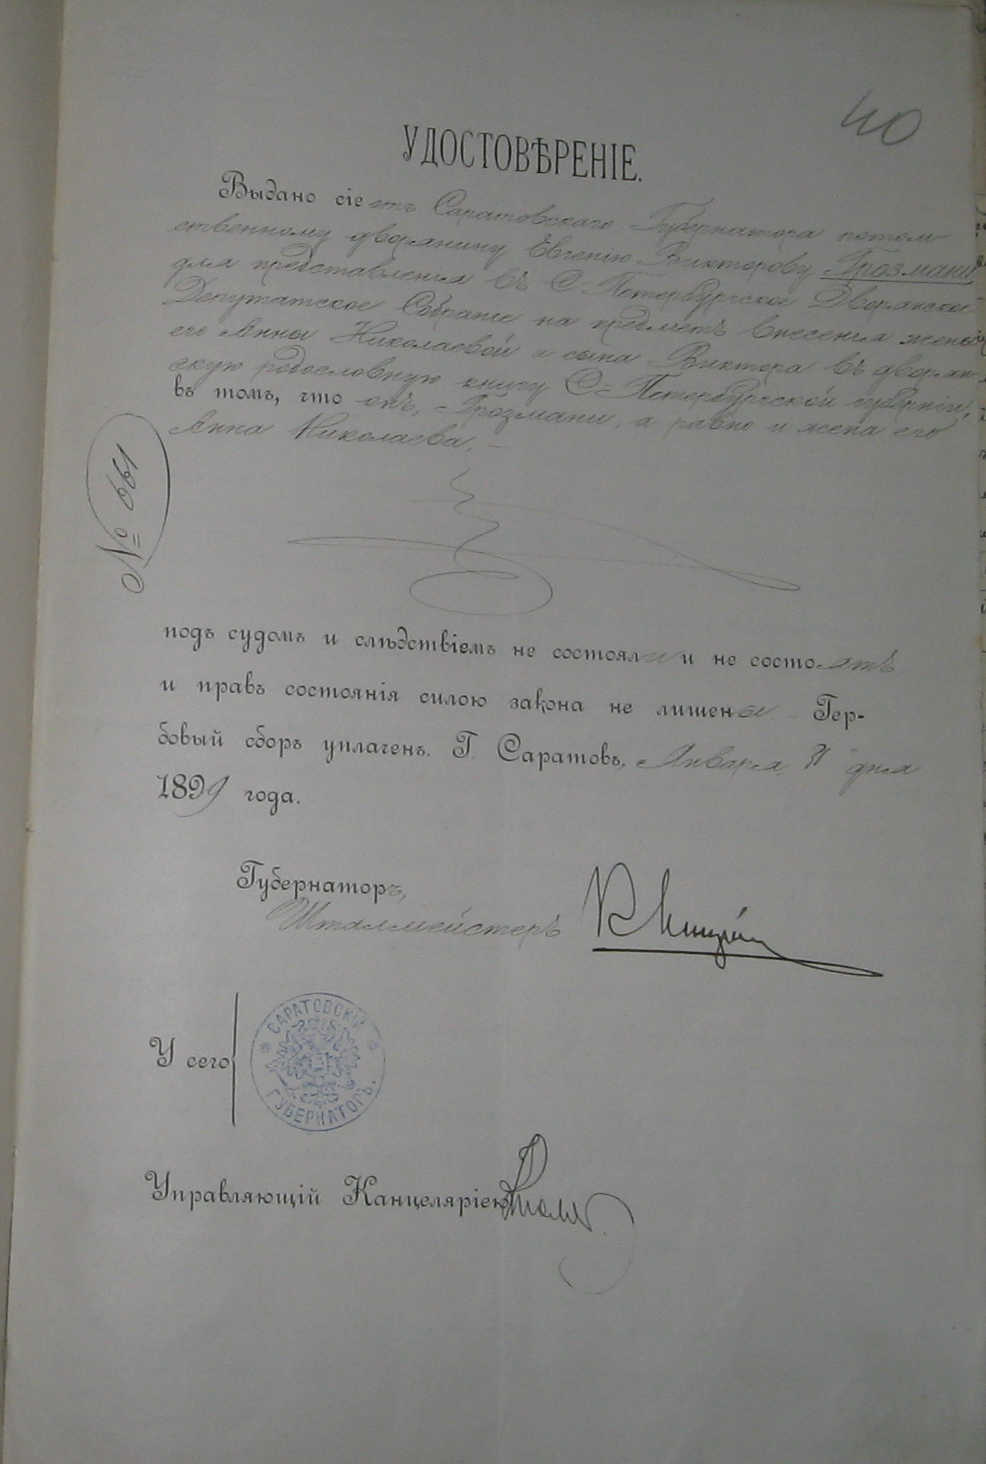 40
УДОСТОВѢРЕНІЕ.
Выдано сіе отъ Саратовскаго Губернатора потом
ственному дворянину Евгенію Викторову Грозмани
для представленія въ С-Петербургское Дворянское
Депутатское Собраніе на предметъ внесенія жены
его Анны Николаевой и сына Виктора въ дворян-
скую родословную книгу С-Петербургской губерніи,
въ томъ, что онъ, Грозмани, а равно и жена его
Анна Николаева, –
№ 661
подъ судомъ и слѣдствіемъ не состояли и не состоятъ
и правъ состоянія силою закона не лишены Гер-
бовый сборъ уплаченъ. Г. Саратовъ, Января дня
1899 года.
Губернаторъ,
Шталмейстеръ
У сего
САРАТОВСКІЙ
ГУБЕРНАТОРЪ.
Управляющій Канцеляріею